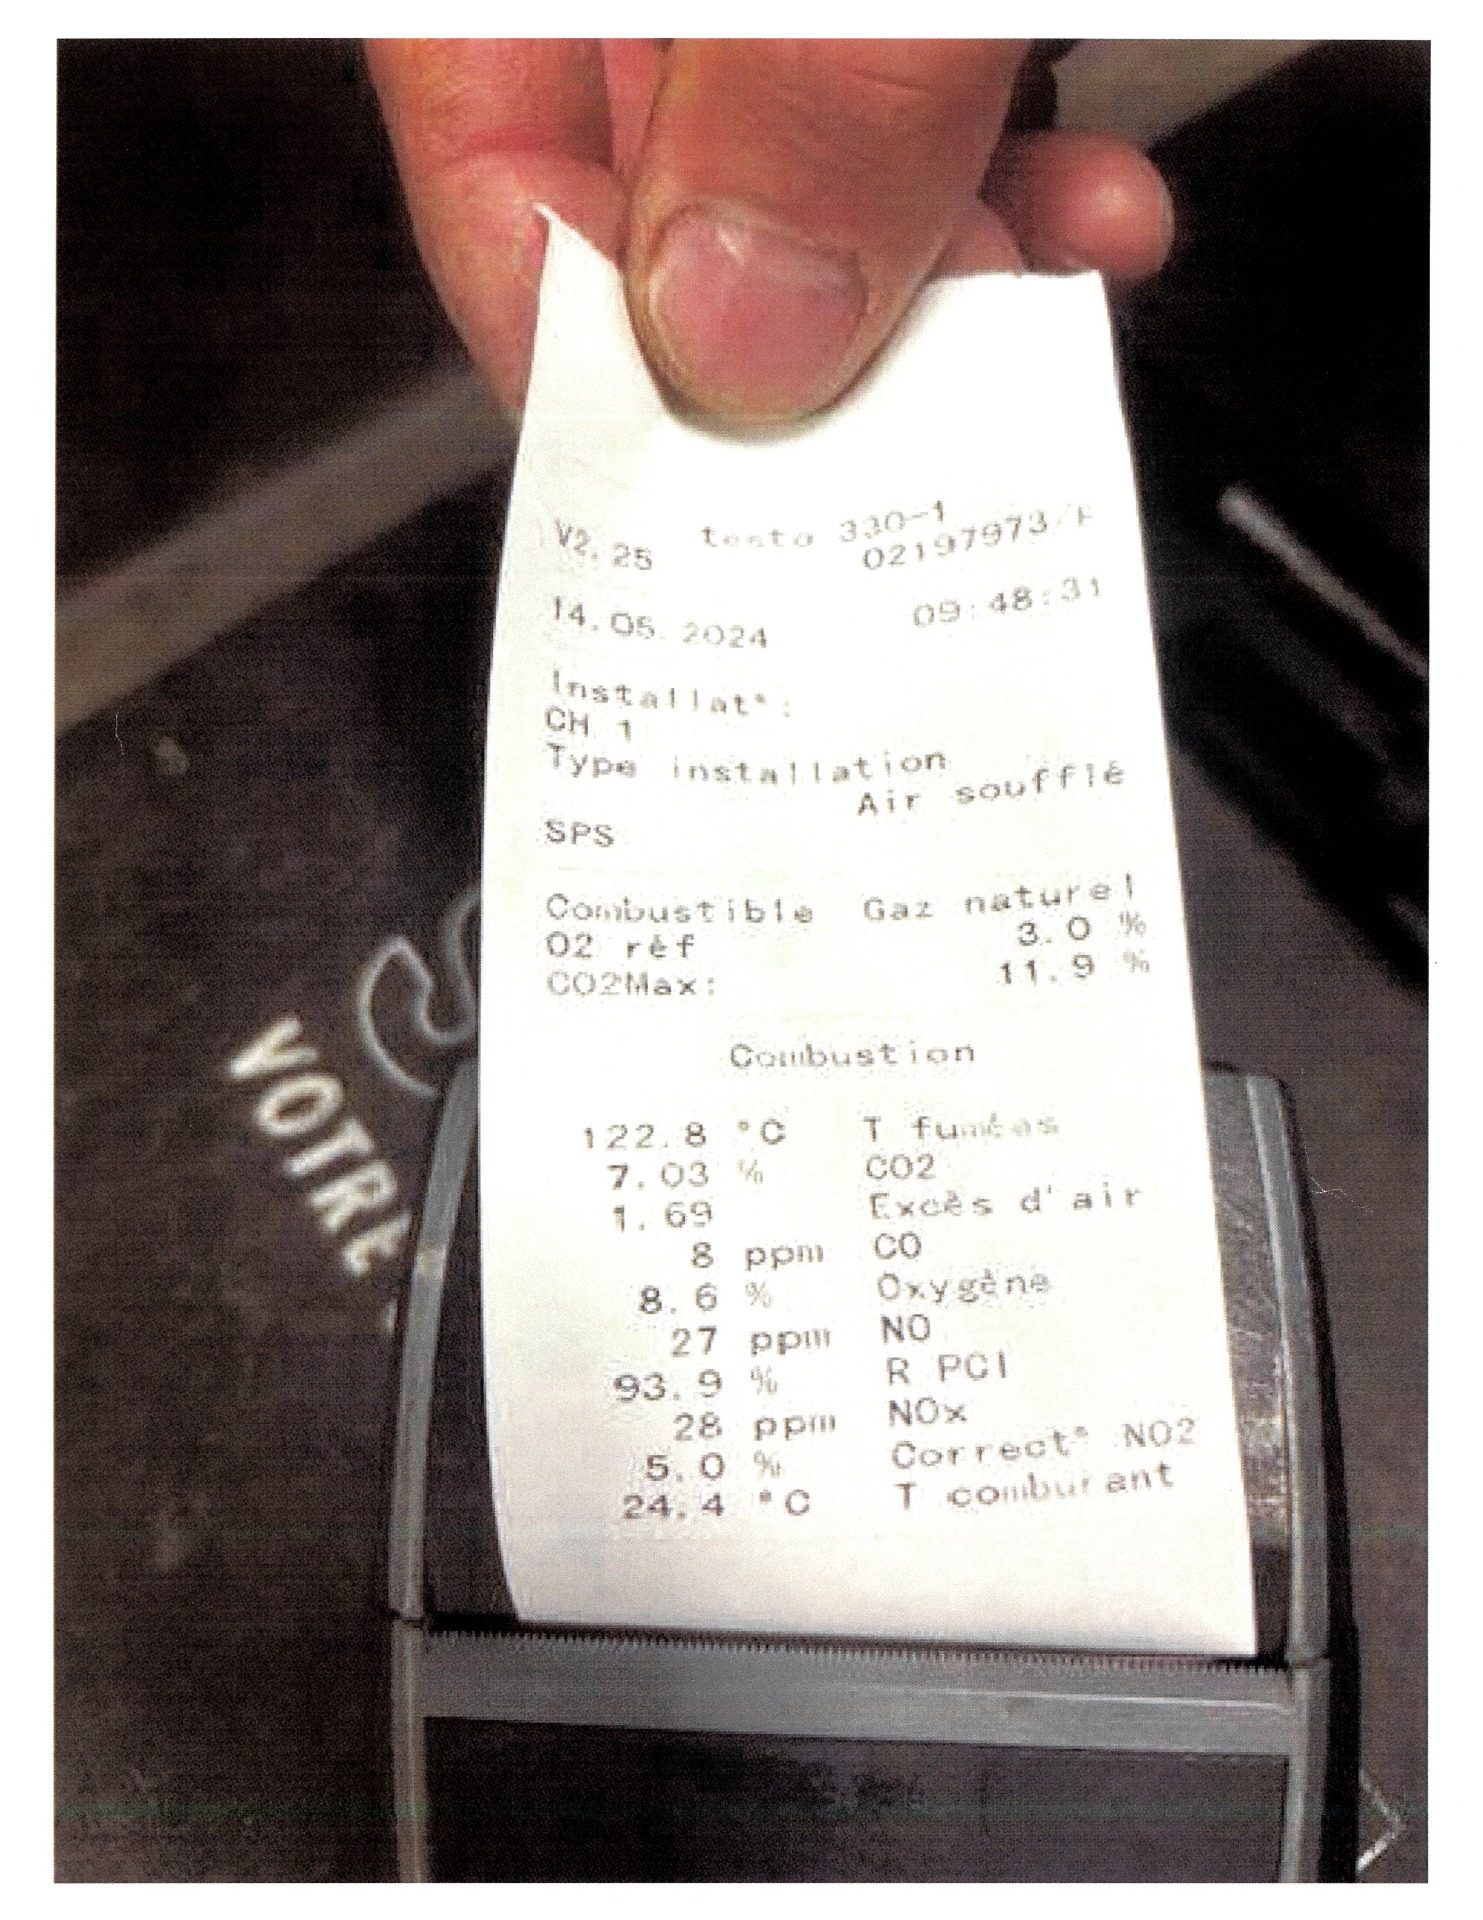 testo 330-1
V2.25 02197973/F
14.05.2024 09:48:31
Installat°:
CH 1
Type installation
Air soufflé
SPS
Combustible Gaz naturel
O2 réf 3.0 %
CO2Max: 11.9 %
Combustion
122.8 °C T fumées
7.03 % CO2
1.69 Excès d'air
8 ppm CO
8.6 % Oxygène
27 ppm NO
93.9 % R PCI
28 ppm NOx
5.0 % Correct° NO2
24.4 °C T comburant
VOTRE